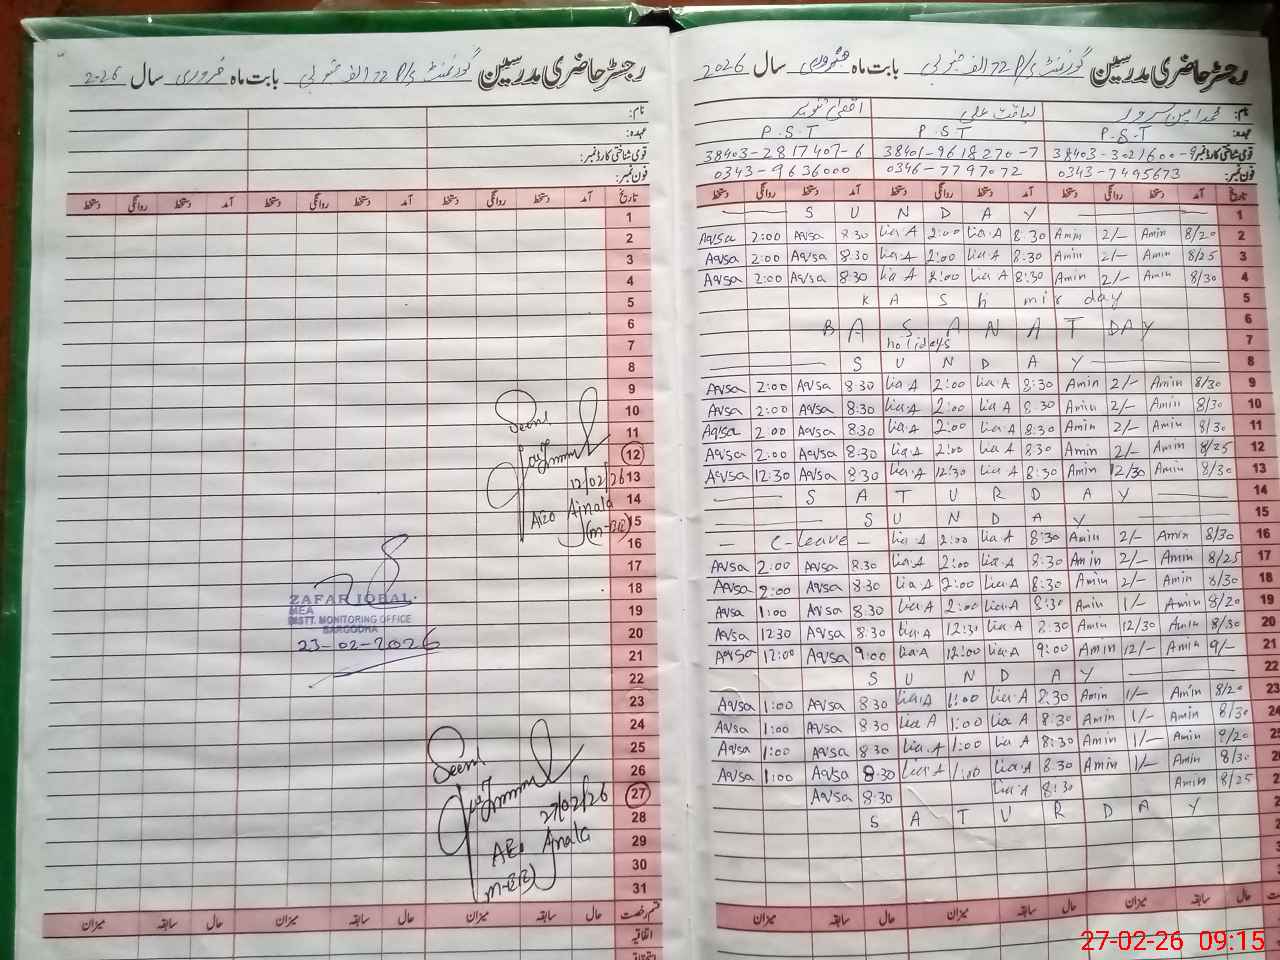 رجسٹر حاضری مدرسین گورنمنٹ P/S 72 الف جنوبی بابت ماہ فروری سال 2-26
نام:
عہدہ:
قومی شناختی کارڈ نمبر:
فون نمبر:
تاریخ آمد دستخط روانگی دستخط آمد دستخط روانگی دستخط آمد دستخط روانگی دستخط
1
2
3
4
5
6
7
8
9
10
11
12
13
14
15
16
17
18
19
20
21
22
23
24
25
26
27
28
29
30
31
Seen
12/02/26
AEO Ajnala
Seen
27/02/26
AEO Ajnala
ZAFAR IQBAL
MEA
DISTT. MONITORING OFFICE
SARGODHA
23-02-2026
قسم رخصت حال سابقہ میزان حال سابقہ میزان حال سابقہ میزان
اتفاقیہ
رجسٹر حاضری مدرسین گورنمنٹ P/S 72 الف جنوبی بابت ماہ فروری سال 2026
نام: محمد امین سرور لیاقت علی اقصیٰ تنویر
عہدہ: P.S.T P.S.T P.S.T
قومی شناختی کارڈ نمبر: 38403-3021600-9 38401-9618270-7 38403-2817407-6
فون نمبر: 0343-7495673 0346-7797072 0343-9636000
تاریخ آمد دستخط روانگی دستخط آمد دستخط روانگی دستخط آمد دستخط روانگی دستخط
S U N D A Y 1
Aqsa 2:00 Aqsa 8.30 Lia.A 2:00 Lia.A 8.30 Amin 2/- Amin 8/20 2
Aqsa 2:00 Aqsa 8.30 Lia.A 2:00 Lia.A 8:30 Amin 2/- Amin 8/25 3
Aqsa 2:00 Aqsa 8.30 Lia A 2:00 Lia A 8:30 Amin 2/- Amin 8/30 4
K A S h mir day 5
6
BA S A N A T DAY
holidays 7
S U N D A Y 8
Aqsa 2:00 Aqsa 8.30 Lia.A 2:00 Lia.A 8:30 Amin 2/- Amin 8/30 9
Aqsa 2:00 Aqsa 8:30 Lia.A 2:00 Lia A 8.30 Amin 2/- Amin 8/30 10
Aqsa 2:00 Aqsa 8:30 Lia.A 2:00 Lia.A 8:30 Amin 2/- Amin 8/30 11
Aqsa 2:00 Aqsa 8.30 Lia.A 2:00 Lia A 8.30 Amin 2/- Amin 8/25 12
Aqsa 12:30 Aqsa 8:30 Lia.A 12:30 Lia A 8:30 Amin 12/30 Amin 8/30 13
S A T U R D A Y 14
S U N D A Y 15
- C-leave - Lia A 2:00 Lia A 8:30 Amin 2/- Amin 8/30 16
Aqsa 2:00 Aqsa 8.30 Lia.A 2:00 Lia.A 8:30 Amin 2/- Amin 8/25 17
Aqsa 2:00 Aqsa 8.30 Lia.A 2:00 Lia.A 8:30 Amin 2/- Amin 8/30 18
Aqsa 1:00 Aqsa 8.30 Lia.A 2:00 Lia.A 8:30 Amin 1/- Amin 8/20 19
Aqsa 12:30 Aqsa 8:30 Lia.A 12:30 Lia.A 8:30 Amin 12/30 Amin 8/30 20
Aqsa 12:00 Aqsa 9:00 Lia.A 12:00 Lia.A 9:00 Amin 12/- Amin 9/- 21
S U N D A Y 22
Aqsa 1:00 Aqsa 8.30 Lia.A 1:00 Lia.A 8.30 Amin 1/- Amin 8/20 23
Aqsa 1:00 Aqsa 8.30 Lia A 1:00 Lia A 8:30 Amin 1/- Amin 8/30
Aqsa 1:00 Aqsa 8.30 Lia.A 1:00 Lia A 8:30 Amin 1/- Amin
Aqsa 1:00 Aqsa 8.30 Lia.A 1:00 Lia.A 8.30 Amin 1/- Amin
Aqsa 8:30 Lia.A 8:30 Amin 8/25
S A T U R D A Y
حال سابقہ میزان حال سابقہ میزان حال سابقہ میزان
27-02-26 09:15